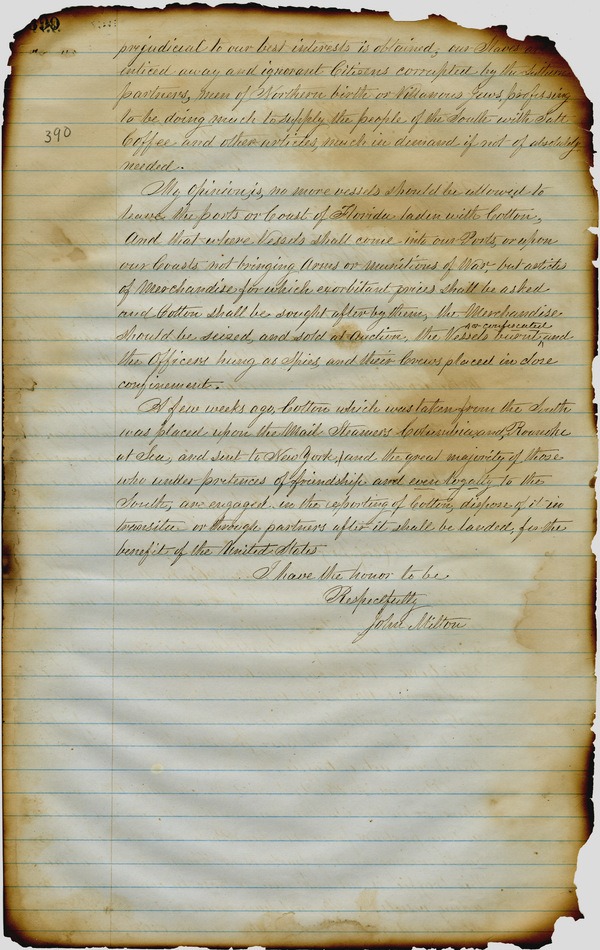 390
prejudicial to our best interests is obtained, our Slaves are
enticed away and ignorant Citizens corrupted by the Southern
partners, men of Northern birth or Villanous Jews, professing
to be doing much to supply the people of the South with Salt
Coffee and other articles, much in demand if not of absolutely
needed.
My Opinion is, no more vessels should be allowed to
leave the ports or Coast of Florida laden with Cotton,
And that where Vessels shall come into our Ports, or upon
our Coasts not bringing Arms or munitions of War, but articles
of Merchandise for which exorbitant prices shall be asked
and Cotton shall be sought after by them, the Merchandise
should be seized, and sold at auction, the Vessels burnt or confiscated and
the Officers hung as Spies, and their Crews placed in close
confinement.
A few weeks ago, Cotton which was taken from the South
was placed upon the Mail Steamers Columbia and Roanoke
at Sea, and sent to New York, and the great majority of those
who under pretences of friendship and even loyalty to the
South, are engaged in the exporting of Cotton, dispose of it in
transitu or through partners after it shall be landed, for the
benefit of the United States
I have the honor to be
Respectfully
John Milton